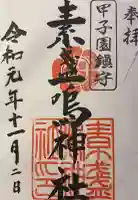 奉拝
甲子園鎮守
素盞嗚神社
令和元年十一月二日